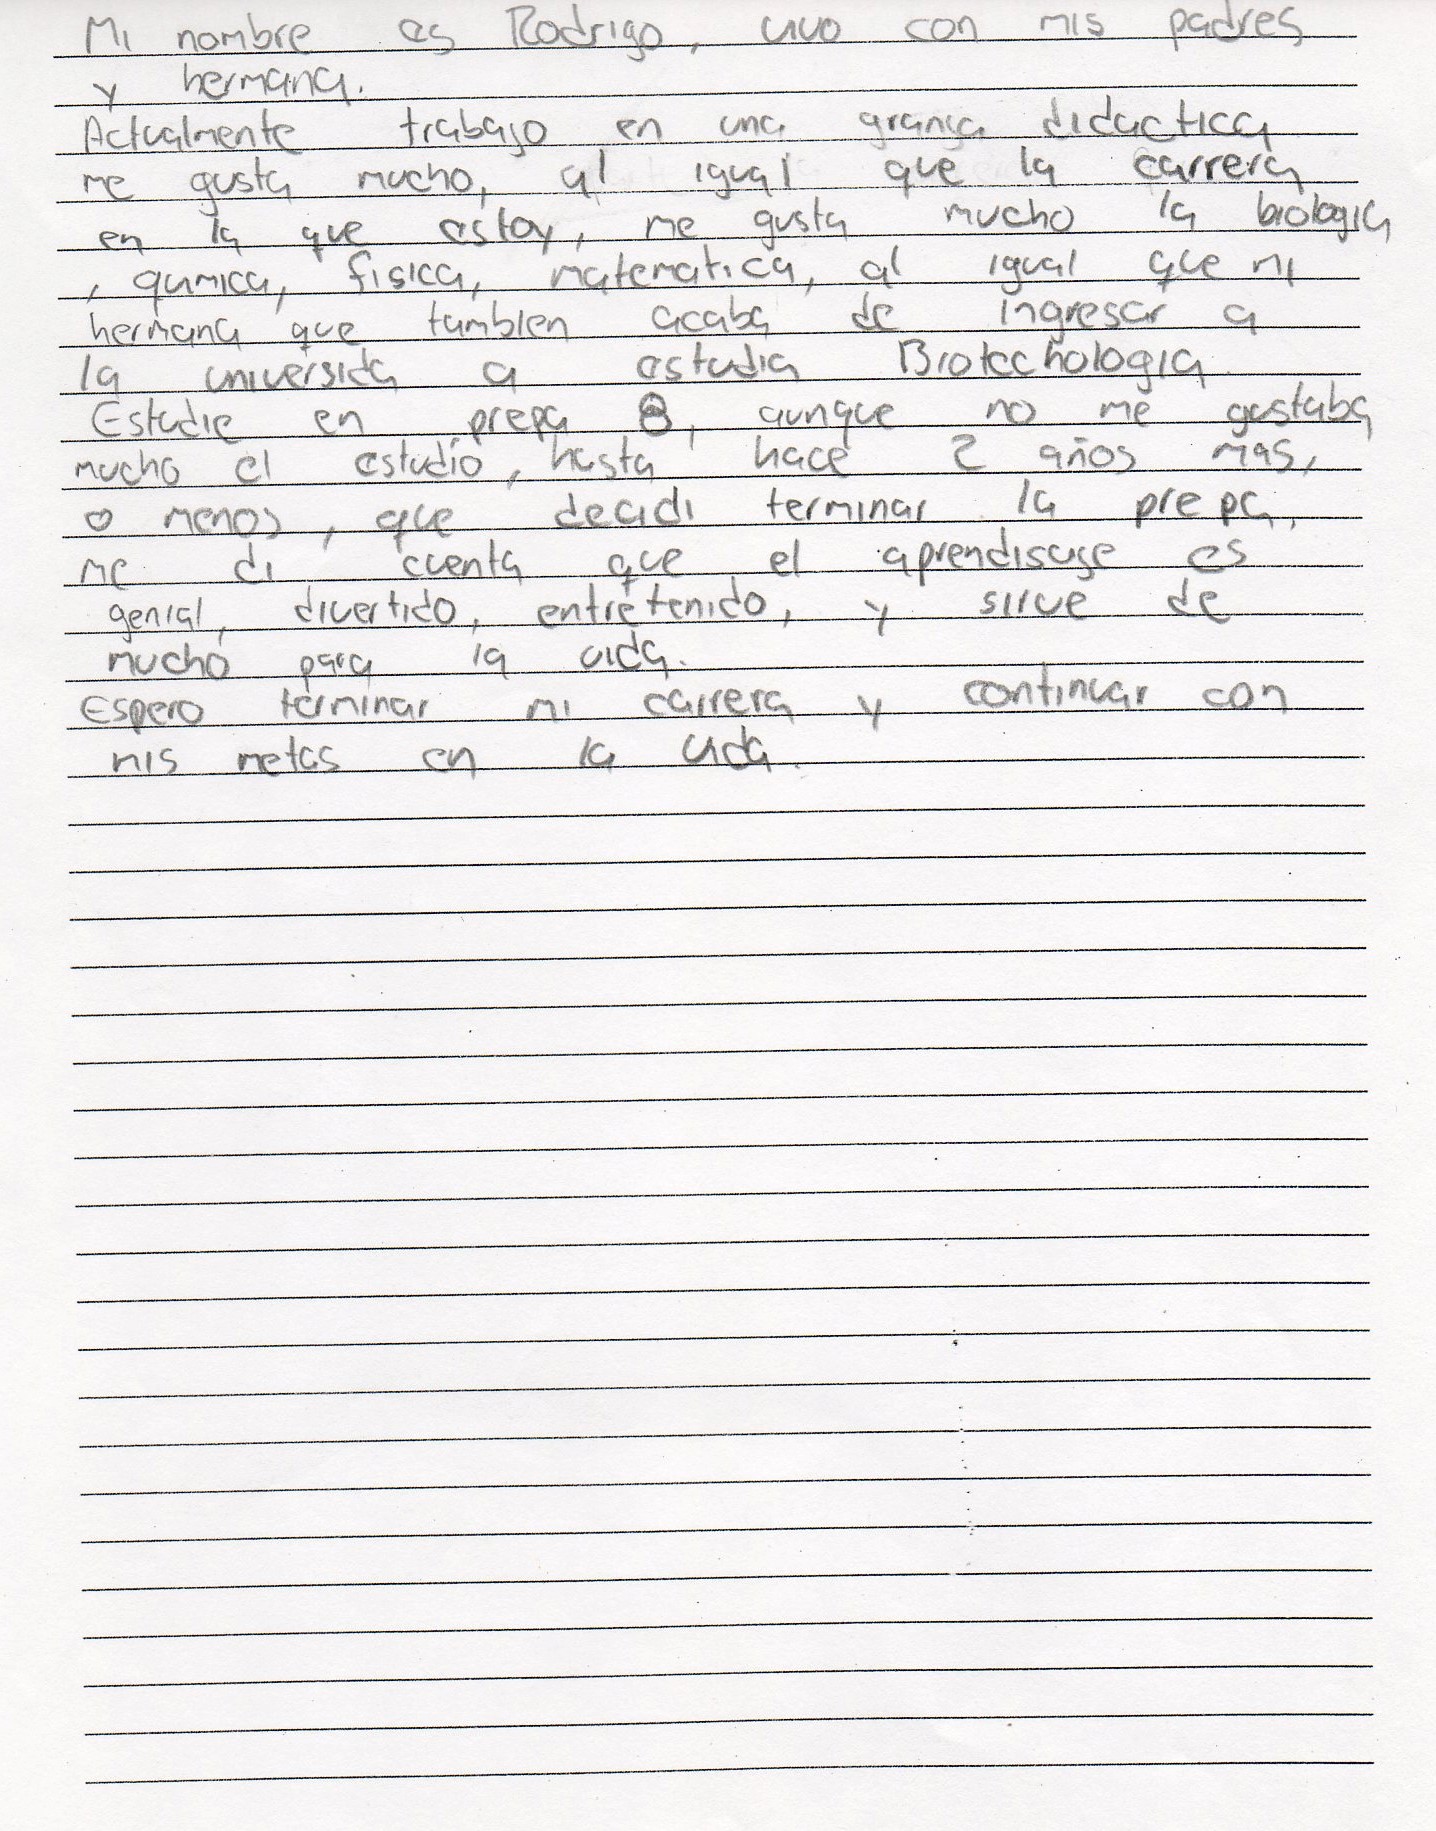 Mi nombre es Rodrigo, vivo con mis padres
y hermana.
Actualmente trabajo en una granja didactica
me gusta mucho, al igual que la carrera
en la que estoy, me gusta mucho la biologia
, quimica, fisica, matematica, al igual que mi
hermana que tambien acaba de ingresar a
la universida a estudia Biotechologia.
Estudie en prepa 8, aunque no me gustaba
mucho el estudio, hasta hace 2 años mas,
o menos, que decidi terminar la prepa,
me di cuenta que el aprendisaje es
genial, divertido, entretenido, y sirve de
mucho para la vida.
Espero terminar mi carrera y continuar con
mis metas en la vida.